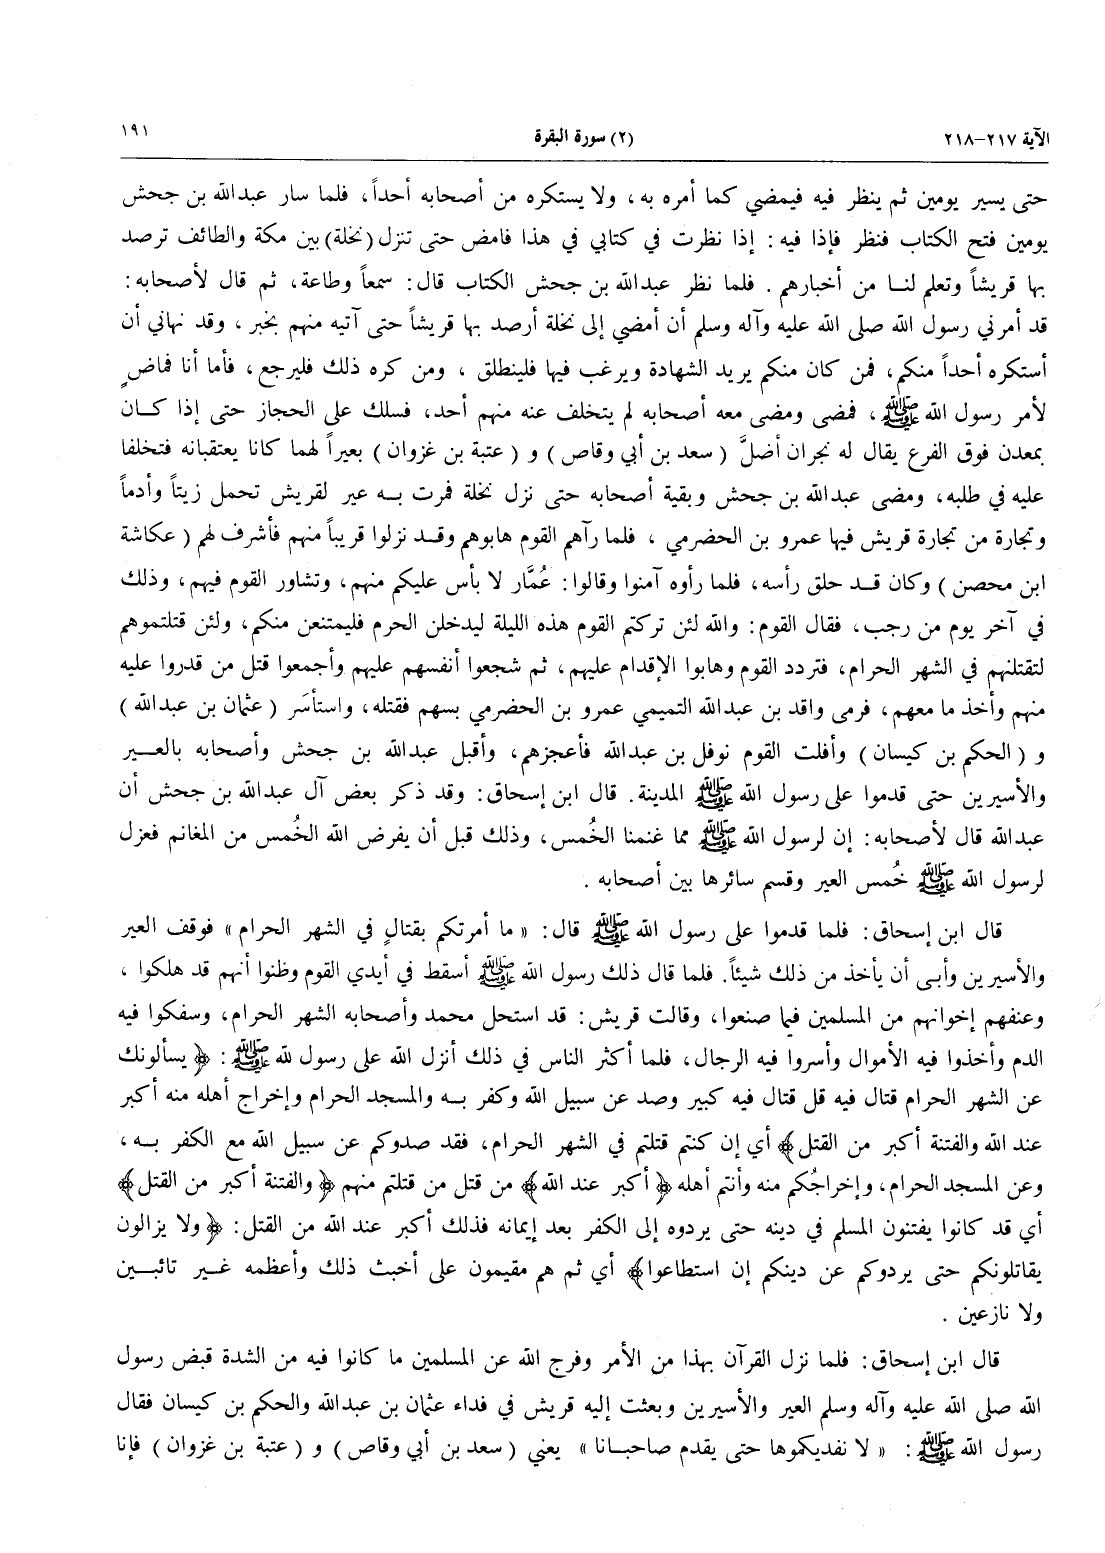 الآية ٢١٧-٢١٨
(٢) سورة البقرة
١٩١
حتى يسير يومين ثم ينظر فيه فيمضي كما أمره به، ولا يستكره من أصحابه أحداً، فلما سار عبدالله بن جحش
يومين فتح الكتاب فنظر فإذا فيه: إذا نظرت في كتابي في هذا فامض حتى تنزل (نخلة) بين مكة والطائف ترصد
بها قريشاً وتعلم لنا من أخبارهم. فلما نظر عبدالله بن جحش الكتاب قال: سمعاً وطاعة، ثم قال لأصحابه:
قد أمرني رسول الله صلى الله عليه وآله وسلم أن أمضي إلى نخلة أرصد بها قريشاً حتى آتيه منهم بخبر، وقد نهاني أن
أستكره أحداً منكم، فمن كان منكم يريد الشهادة ويرغب فيها فلينطلق، ومن كره ذلك فليرجع، فأما أنا فماضٍ
لأمر رسول الله ﷺ، فمضى ومضى معه أصحابه لم يتخلف عنه منهم أحد، فسلك على الحجاز حتى إذا كان
بمعدن فوق الفرع يقال له نجران أضلَّ (سعد بن أبي وقاص) و (عتبة بن غزوان) بعيراً لهما كانا يعتقبانه فتخلفا
عليه في طلبه، ومضى عبدالله بن جحش وبقية أصحابه حتى نزل نخلة فمرت به عير لقريش تحمل زيتاً وأدماً
وتجارة من تجارة قريش فيها عمرو بن الحضرمي، فلما رآهم القوم هابوهم وقد نزلوا قريباً منهم فأشرف لهم (عكاشة
ابن محصن) وكان قد حلق رأسه، فلما رأوه آمنوا وقالوا: عُمَّار لا بأس عليكم منهم، وتشاور القوم فيهم، وذلك
في آخر يوم من رجب، فقال القوم: والله لئن تركتم القوم هذه الليلة ليدخلن الحرم فليمتنعن منكم، ولئن قتلتموهم
لتقتلنهم في الشهر الحرام، فتردد القوم وهابوا الإقدام عليهم، ثم شجعوا أنفسهم عليهم وأجمعوا قتل من قدروا عليه
منهم وأخذ ما معهم، فرمى واقد بن عبدالله التميمي عمرو بن الحضرمي بسهم فقتله، واستأسَر (عثمان بن عبدالله)
و (الحكم بن كيسان) وأفلت القوم نوفل بن عبدالله فأعجزهم، وأقبل عبدالله بن جحش وأصحابه بالعير
والأسيرين حتى قدموا على رسول الله ﷺ المدينة. قال ابن إسحاق: وقد ذكر بعض آل عبدالله بن جحش أن
عبدالله قال لأصحابه: إن لرسول الله ﷺ مما غنمنا الخُمس، وذلك قبل أن يفرض الله الخُمس من المغانم فعزل
لرسول الله ﷺ خُمس العير وقسم سائرها بين أصحابه.
قال ابن إسحاق: فلما قدموا على رسول الله ﷺ قال: «ما أمرتكم بقتالٍ في الشهر الحرام» فوقف العير
والأسيرين وأبى أن يأخذ من ذلك شيئاً. فلما قال ذلك رسول الله ﷺ أسقط في أيدي القوم وظنوا أنهم قد هلكوا،
وعنفهم إخوانهم من المسلمين فيما صنعوا، وقالت قريش: قد استحل محمد وأصحابه الشهر الحرام، وسفكوا فيه
الدم وأخذوا فيه الأموال وأسروا فيه الرجال، فلما أكثر الناس في ذلك أنزل الله على رسول لله ﷺ: ﴿يسألونك
عن الشهر الحرام قتال فيه قل قتال فيه كبير وصد عن سبيل الله وكفر به والمسجد الحرام وإخراج أهله منه أكبر
عند الله والفتنة أكبر من القتل﴾ أي إن كنتم قتلتم في الشهر الحرام، فقد صدوكم عن سبيل الله مع الكفر به،
وعن المسجد الحرام، وإخراجُكم منه وأنتم أهله ﴿أكبر عند الله﴾ من قتل من قتلتم منهم ﴿والفتنة أكبر من القتل﴾
أي قد كانوا يفتنون المسلم في دينه حتى يردوه إلى الكفر بعد إيمانه فذلك أكبر عند الله من القتل: ﴿ولا يزالون
يقاتلونكم حتى يردوكم عن دينكم إن استطاعوا﴾ أي ثم هم مقيمون على أخبث ذلك وأعظمه غير تائبين
ولا نازعين.
قال ابن إسحاق: فلما نزل القرآن بهذا من الأمر وفرج الله عن المسلمين ما كانوا فيه من الشدة قبض رسول
الله صلى الله عليه وآله وسلم العير والأسيرين وبعثت إليه قريش في فداء عثمان بن عبدالله والحكم بن كيسان فقال
رسول الله ﷺ: «لا نفديكموها حتى يقدم صاحبانا» يعني (سعد بن أبي وقاص) و (عتبة بن غزوان) فإنا